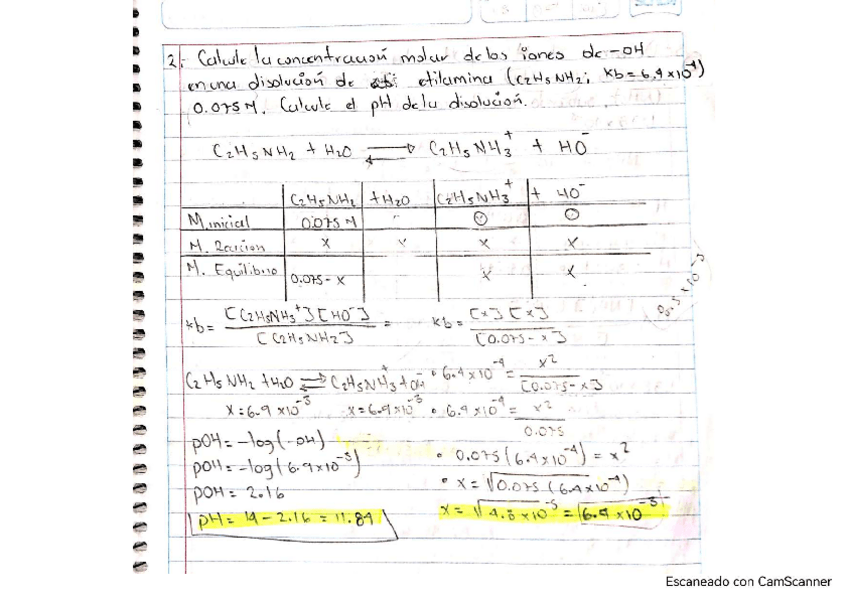 2.- Calcule la concentración molar de los iones de -OH
en una disolución de etilamina (C2H5NH2; Kb = 6.4x10⁻⁴)
0.075 M. Calcule el pH de la disolución.
C2H5NH2 + H2O ⇌ C2H5NH3⁺ + HO⁻
C2H5NH2 +H2O C2H5NH3⁺ + HO⁻
M. inicial 0.075 M - 0 0
M. Reacción x x x x
M. Equilibrio 0.075-x x x
Kb = [C2H5NH3⁺][HO⁻] / [C2H5NH2] = Kb = [x][x] / [0.075-x]
C2H5NH2 + H2O ⇌ C2H5NH3⁺ + OH⁻ • 6.4x10⁻⁴ = x² / [0.075-x]
x = 6.9x10⁻³ x = 6.9x10⁻³ • 6.4x10⁻⁴ = x² / 0.075
pOH = -log(-OH)
• 0.075 (6.4x10⁻⁴) = x²
pOH = -log(6.9x10⁻³)
• x = √0.075 (6.4x10⁻⁴)
pOH = 2.16
x = √4.8x10⁻⁵ = 6.9x10⁻³
pH = 14 - 2.16 = 11.84
Escaneado con CamScanner